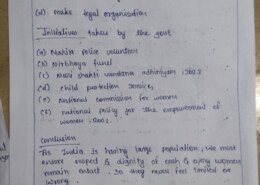 (d) make legal organisation
Initiatives taken by the govt
(a) Mahila police volunteer
(b) Nirbhaya fund
(c) Nari shakti vandana adhiniyam
(d) child protection services
(e) national commission for women
(f) national policy for the empowerment of
women
Conclusion
India is having large population, we must
ensure respect & dignity of each & every women
remain intact. so they